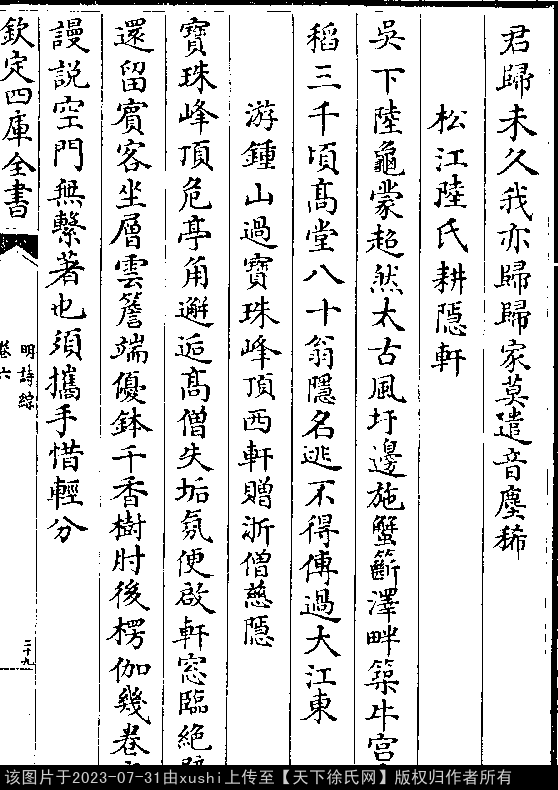 君歸未久我亦歸歸家莫遣音塵稀
松江陸氏耕隱軒
吳下陸龜蒙超然太古風圩邊施蟹籪澤畔築牛宮
稻三千頃髙堂八十翁隱名逃不得傳過大江東
游鍾山過寶珠峰頂西軒贈浙僧慈隱
寶珠峰頂危亭角邂逅髙僧失垢氛便啟軒窓臨絶
還留賓客坐層雲簷端優鉢千香樹肘後楞伽幾卷
謾説空門無繫著也須攜手惜輕分
欽定四庫全書
明詩綜
卷六
二十九
该图片于2023-07-31由xushi上传至【天下徐氏网】版权归作者所有